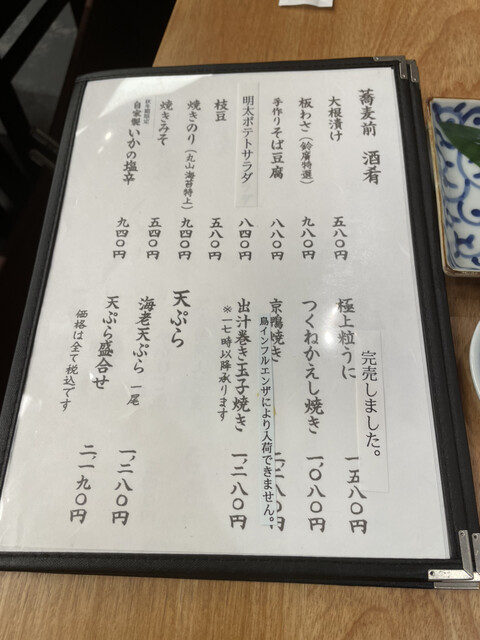 蕎麦前 酒肴
大根漬け 五八〇円
板わさ(鈴廣特選) 九八〇円
手作りそば豆腐 八八〇円
明太ポテトサラダ 八四〇円
枝豆 五八〇円
焼きのり(丸山海苔特上) 九四〇円
焼きみそ 五四〇円
自家製いかの塩辛 九四〇円
完売しました。
極上粒うに 一、五八〇円
つくねかえし焼き 一、〇八〇円
京鴨焼き 二、二八〇円
鳥インフルエンザにより入荷できません。
出汁巻き玉子焼き 一、二八〇円
※一七時以降承ります
天ぷら
海老天ぷら 一尾 一、二八〇円
天ぷら盛合せ 二、一九〇円
価格は全て税込です